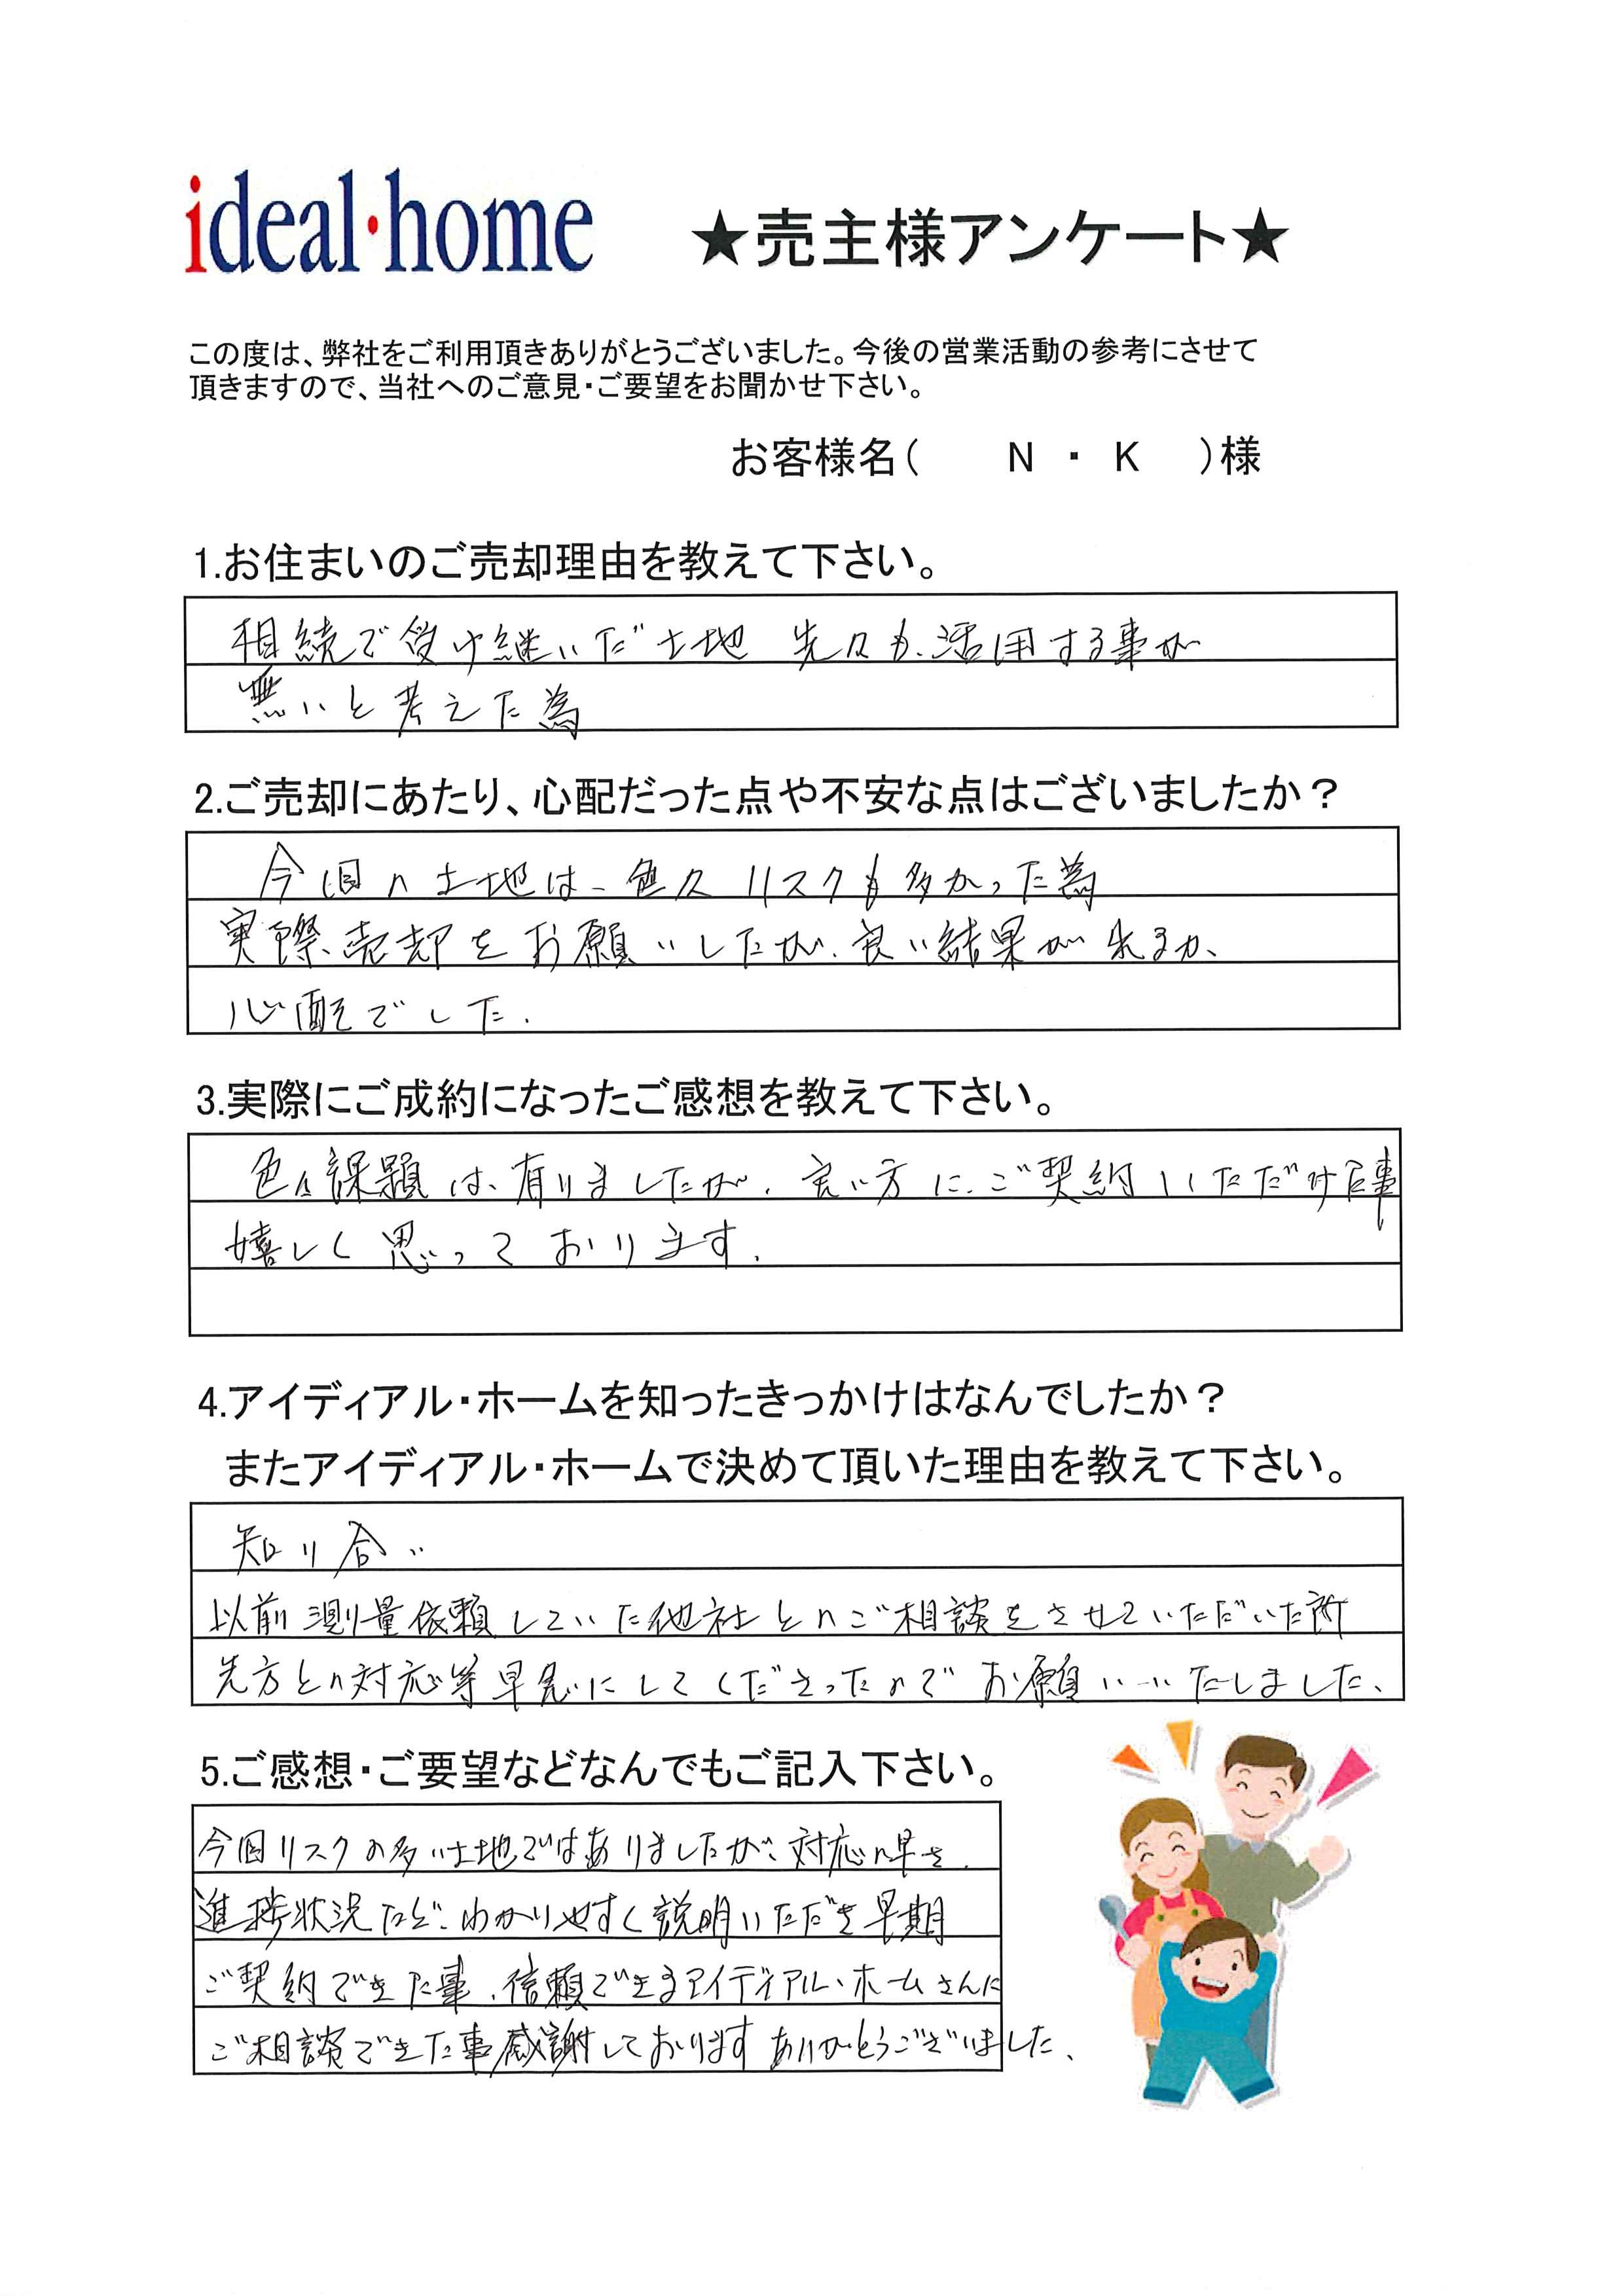 ideal・home
★売主様アンケート★
この度は、弊社をご利用頂きありがとうございました。今後の営業活動の参考にさせて
頂きますので、当社へのご意見・ご要望をお聞かせ下さい。
お客様名( N ・ K )様
1.お住まいのご売却理由を教えて下さい。
相続で受け継いだ土地 先々も、活用する事が
無いと考えた為
2.ご売却にあたり、心配だった点や不安な点はございましたか？
今回の土地は、色々リスクも多かった為
実際、売却をお願いしたが、良い結果が来るか、
心配でした。
3.実際にご成約になったご感想を教えて下さい。
色々課題は、有りましたが、良い方に、ご契約いただけた事
嬉しく思っております。
4.アイディアル・ホームを知ったきっかけはなんでしたか？
またアイディアル・ホームで決めて頂いた理由を教えて下さい。
知り合い
以前測量依頼していた他社とのご相談をさせていただいた所
先方との対応等早急にしてくださったのでお願いいたしました、
5.ご感想・ご要望などなんでもご記入下さい。
今回リスクの多い土地ではありましたが、対応の早さ、
進捗状況など、わかりやすく説明いただき早期
ご契約できた事、信頼できるアイディアル・ホームさんに
ご相談できた事感謝しております ありがとうございました、